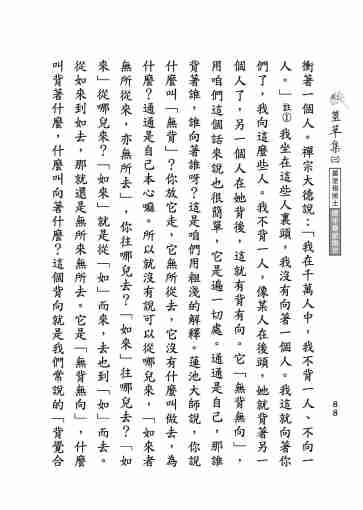 蕅草集㈢
88
衝著一個人。禪宗大德說：「我在千萬人中，我不背一人、不向一
人。」註①我坐在這些人裏頭，我沒有向著一個人。我這就向著你
們了，我向這麼些人。我不背一人，像某人在後頭，她就背著另一
個人了，另一個人在她背後，這就有背有向。它「無背無向」，
用咱們這個話來說也很簡單，它是遍一切處。通通是自己，那誰
背著誰，誰向著誰呀？這是咱們用粗淺的解釋。蓮池大師說，你說
什麼叫「無背」？你放它走，它無所從去，它沒有什麼叫做去，為
什麼？通通是自己本心嘛。所以就沒有說可以從哪兒來，「如來者
無所從來，亦無所去」，你往哪兒去？「如來」往哪兒去？「如
來」從哪兒來？「如來」就是從「如」而來，去也到「如」而去。
從如來到如去，那就還是無所來無所去。它是「無背無向」，什麼
叫背著什麼，什麼叫向著什麼？這個背向就是我們常說的「背覺合